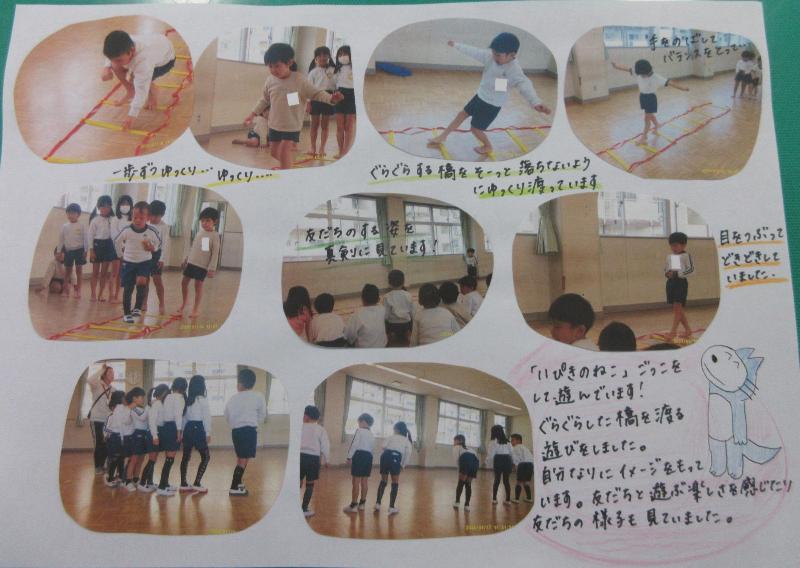 手をのばして
バランスをとって…
一歩ずつゆっくり… ゆっくり….
ぐらぐらする橋をそーっと落ちないよう
にゆっくり渡っています
友だちのする姿を
真剣に見ています！
目をつぶって
どきどきして
いました．
「11ぴきのねこ」ごっこを
して遊んでいます！
ぐらぐらした橋を渡る
遊びをしました。
自分なりにイメージをもって
います。友だちと遊ぶ楽しさを感じたり
友だちの様子も見ていました。